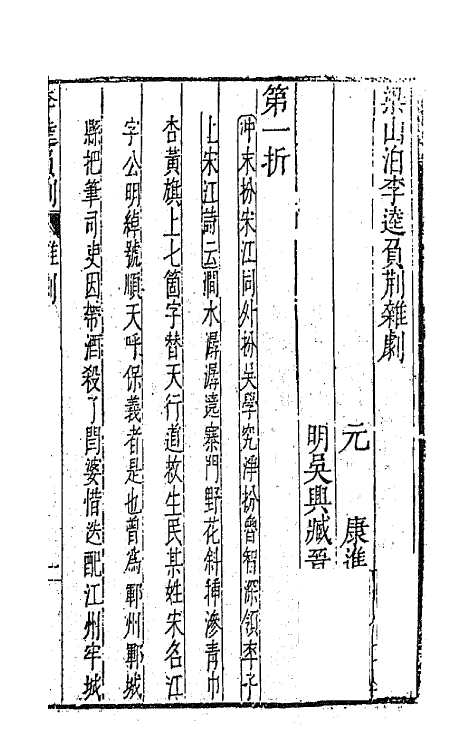 梁山泊李逵負荊雜劇
元　康進
明吳興臧晉
第一折
冲末扮宋江同外扮吳學究淨扮魯智深領卒子
上宋江詩云澗水潺潺遶寨門野花斜揷滲青巾
杏黃旗上七箇字替天行道救生民某姓宋名江
字公明綽號順天呼保義者是也曾爲鄆州鄆城
縣把筆司吏因帶酒殺了閻婆惜迭配江州牢城
李逵負荊　雜劇
一